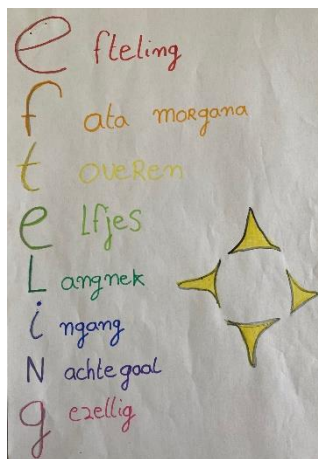 efteling
fata morgana
toveren
elfjes
Langnek
ingang
Nachtegaal
gezellig